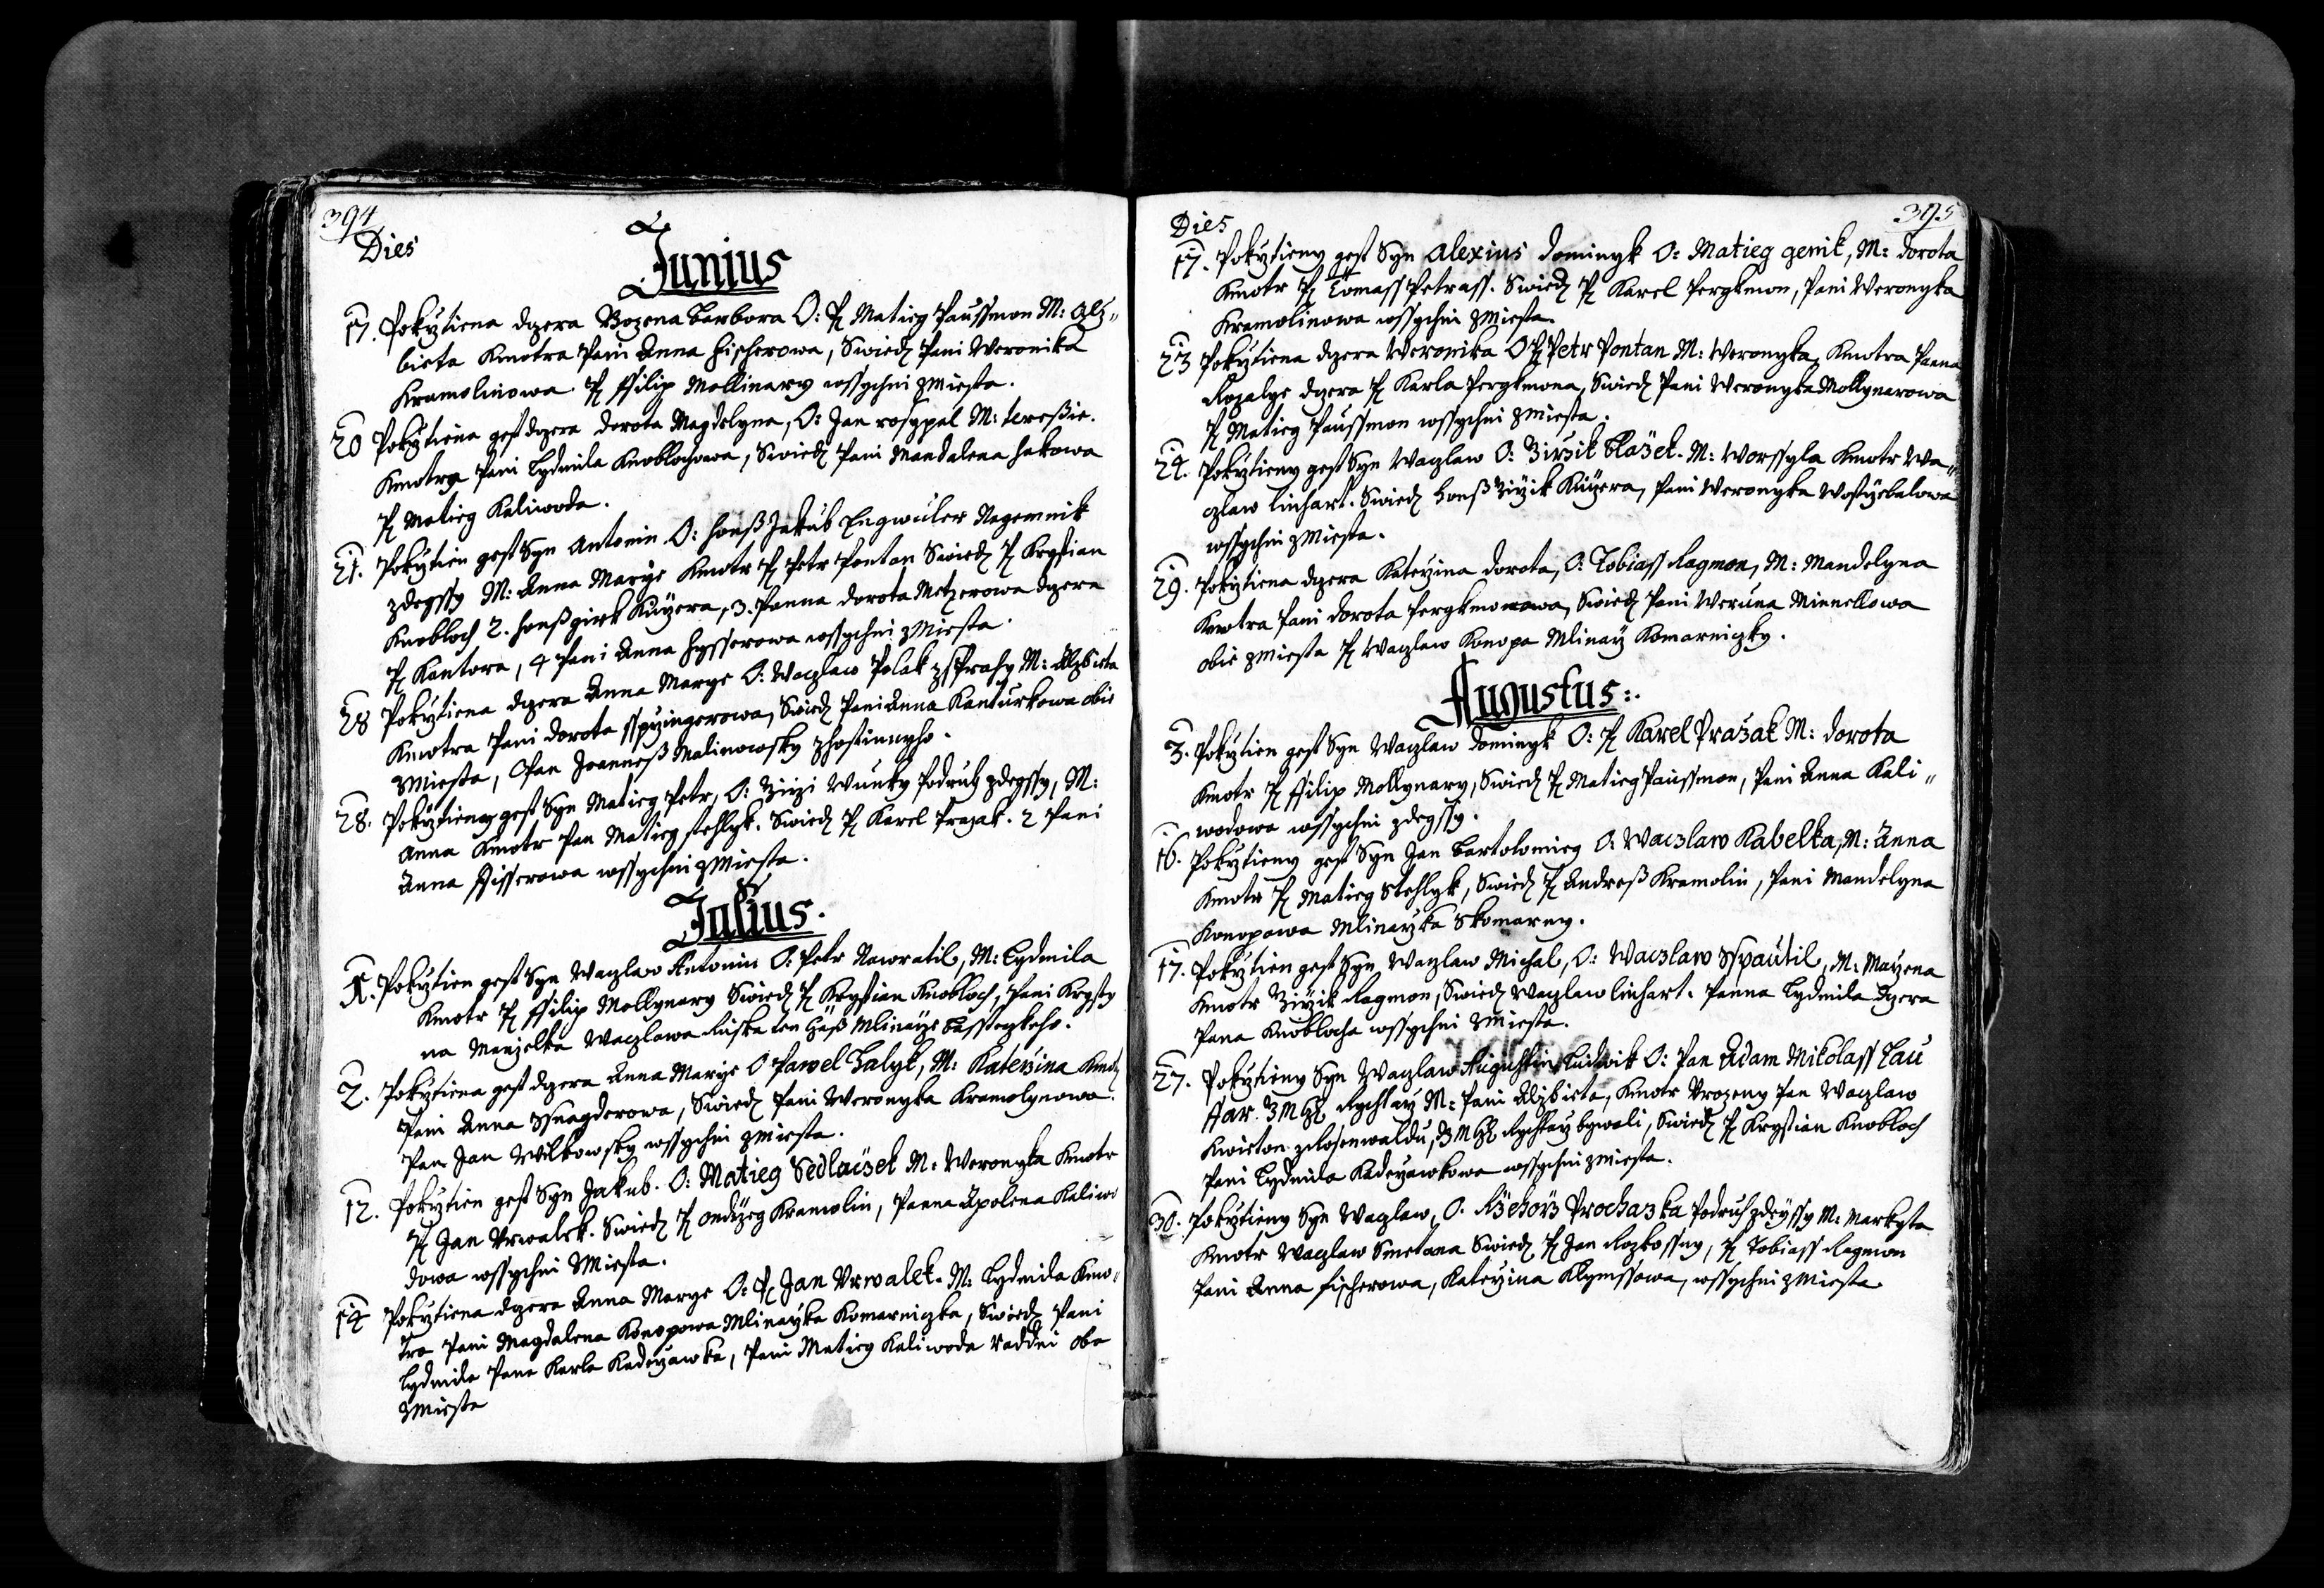 394
Dies
Junius
17. Pokrztiena dczera Bozena Barbora O: P. Matieg Paussmon M: Alz„
bieta Kmotra Pani Anna Fischerowa, Swied. Pani Weronika
Kramolinowa P. Ffilip Mollinary wssychni z Miesta.
20 Pokrztiena gest dczera Dorota Magdelyna, O: Jan rosypal M:
Kmotra Pani Lydmila Knoblochowa, Swied. Pani Mandalena Hakowa
P. Matieg Kaliwoda.
21. Pokrztien gest Syn Antonin O: Honß Jakub Engwuler Nagemnik
zdegssy M: Anna Marye Kmotr P. Petr Pontan Swied. P. Krystian
Knobloch 2. Honß girik Kuczera, 3. Panna Dorota Metzerowa dczera
P. Kantora, 4 Pani Anna Fyssrowa wssychni z Miesta.
28 Pokrztiena dczera Anna Marye O: Waczlaw Polak z Prahy M: Alzbieta
Kmotra Pani Dorota Swied. Pani Anna Kanturkowa obie
z Miesta, Pan Joanneß Malinowsky z hostinnyho.
28. Pokrztieny gest Syn Matieg Petr, O: Jirzi Wunky Podruh zdegssy, M:
Anna Kmotr Pan Matieg stehlyk. Swied. P. Karel Prazak. 2 Pani
Anna Fisserowa wssychni z Miesta.
Julius.
1. Pokrztien gest Syn Waczlaw Antonin O: Petr Nawratil, M: Lydmila
Kmotr P. Ffilip Mollynary Swied. P. Krystian Knobloch, Pani Krysty
na Manzelka Waczlawa
2. Pokrztiena gest dczera Anna Marye O Pawel Zalyk, M: Katerzina Kmo
Pani Anna Ssnayderowa, Swied. Pani Weronyka Kramolynowa.
Pan Jan Wilkowsky wssychni z Miesta.
12. Pokrztien gest Syn Jakub. O: Matieg Sedlaczek M: Weronyka Kmotr
P. Jan Urwalek. Swied. P. Ondrzeg Kramolin, Panna Apolena Kaliwo
dowa wssychni z Miesta.
14 Pokrztiena dczera Anna Marye O: P. Jan Urwalek. M: Lydmila Kmo„
tra Pani Magdalena Konopowa Mlinarzka Komarniczka, Swied. Pani
Lydmila Pana Karla Kaderzawka, Pani Matieg Kaliwoda Raddni oba
z Miesta
395
Dies
17. Pokrztieny gest Syn Alexius Dominyk O: Matieg genik, M: Dorota
Kmotr P. Tomass Petrass. Swied. P. Karel Pergkmon, Pani Weronyka
Kramolinowa wssychni z Miesta.
23 Pokrztiena dczera Weronika O P. Petr Pontan M: Weronyka, Kmotra Panna
Rozalye dczera P. Karla Pergkmona, Swied. Pani Weronyka Mollynarowa
P. Matieg Paussmon wssychni z Miesta.
24. Pokrztieny gest Syn Waczlaw O: Jirzik Blažek. M: Worssyla Kmotr Wa„
czlaw Linhart. Swied. Honß Jirzik Kuczera, Pani Weronyka Wostrzebalowa
wssychni z Miesta.
29. Pokrztiena dczera Katerzina Dorota, O: Tobiass Ragmon, M: Mandelyna
Kmotra Pani Dorota Pergkmonowa, Swied. Pani Weruna Minnellowa
obie z Miesta P. Waczlaw Konopa Mlinarz Komarniczky.
Augustus:.
3. Pokrztien gest Syn Waczlaw Dominyk O: P. Karel Prazak M: Dorota
Kmotr P. Ffilip Mollynary, Swied. P. Matieg Paussmon, Pani Anna Kali„
wodowa wssychni zdegssy.
16. Pokrztieny gest Syn Jan Bartolomieg O: Waczlaw Kabelka, M: Anna
Kmotr P. Matieg Stehlyk, Swied. P. Andreß Kramolin, Pani Mandelyna
Konopowa Mlinarzka Skomarny.
17. Pokrztien gest Syn Waczlaw Michal, O: Waczlaw Sspautil, M: Marzena
Kmotr Jirzik Ragmon, Swied. Waczlaw Linhart. Panna Lydmila dczera
Pana Knoblocha wssychni z Miesta.
27. Pokrztieny Syn Waczlaw Augustin Ludwik O: Pan Adam Mikolass Lau
ffar. Rychtarz M: Pani Alzbieta, Kmotr Urozeny Pan Waczlaw
Kwieton z Rosenwaldu, Rychtarz bywali, Swied. P. Krystian Knobloch
Pani Lydmila Kaderzawkowa wssychni z Miesta.
30. Pokrztieny Syn Waczlaw, O. Rzehorz Prochazka Podruh zdeyssy M: Markyta
Kmotr Waczlaw Smetana Swied. P. Jan Rozkossny, P. Tobiass Ragmon
Pani Anna Fischerowa, Katerzina Klymssowa, wssychni z Miesta.